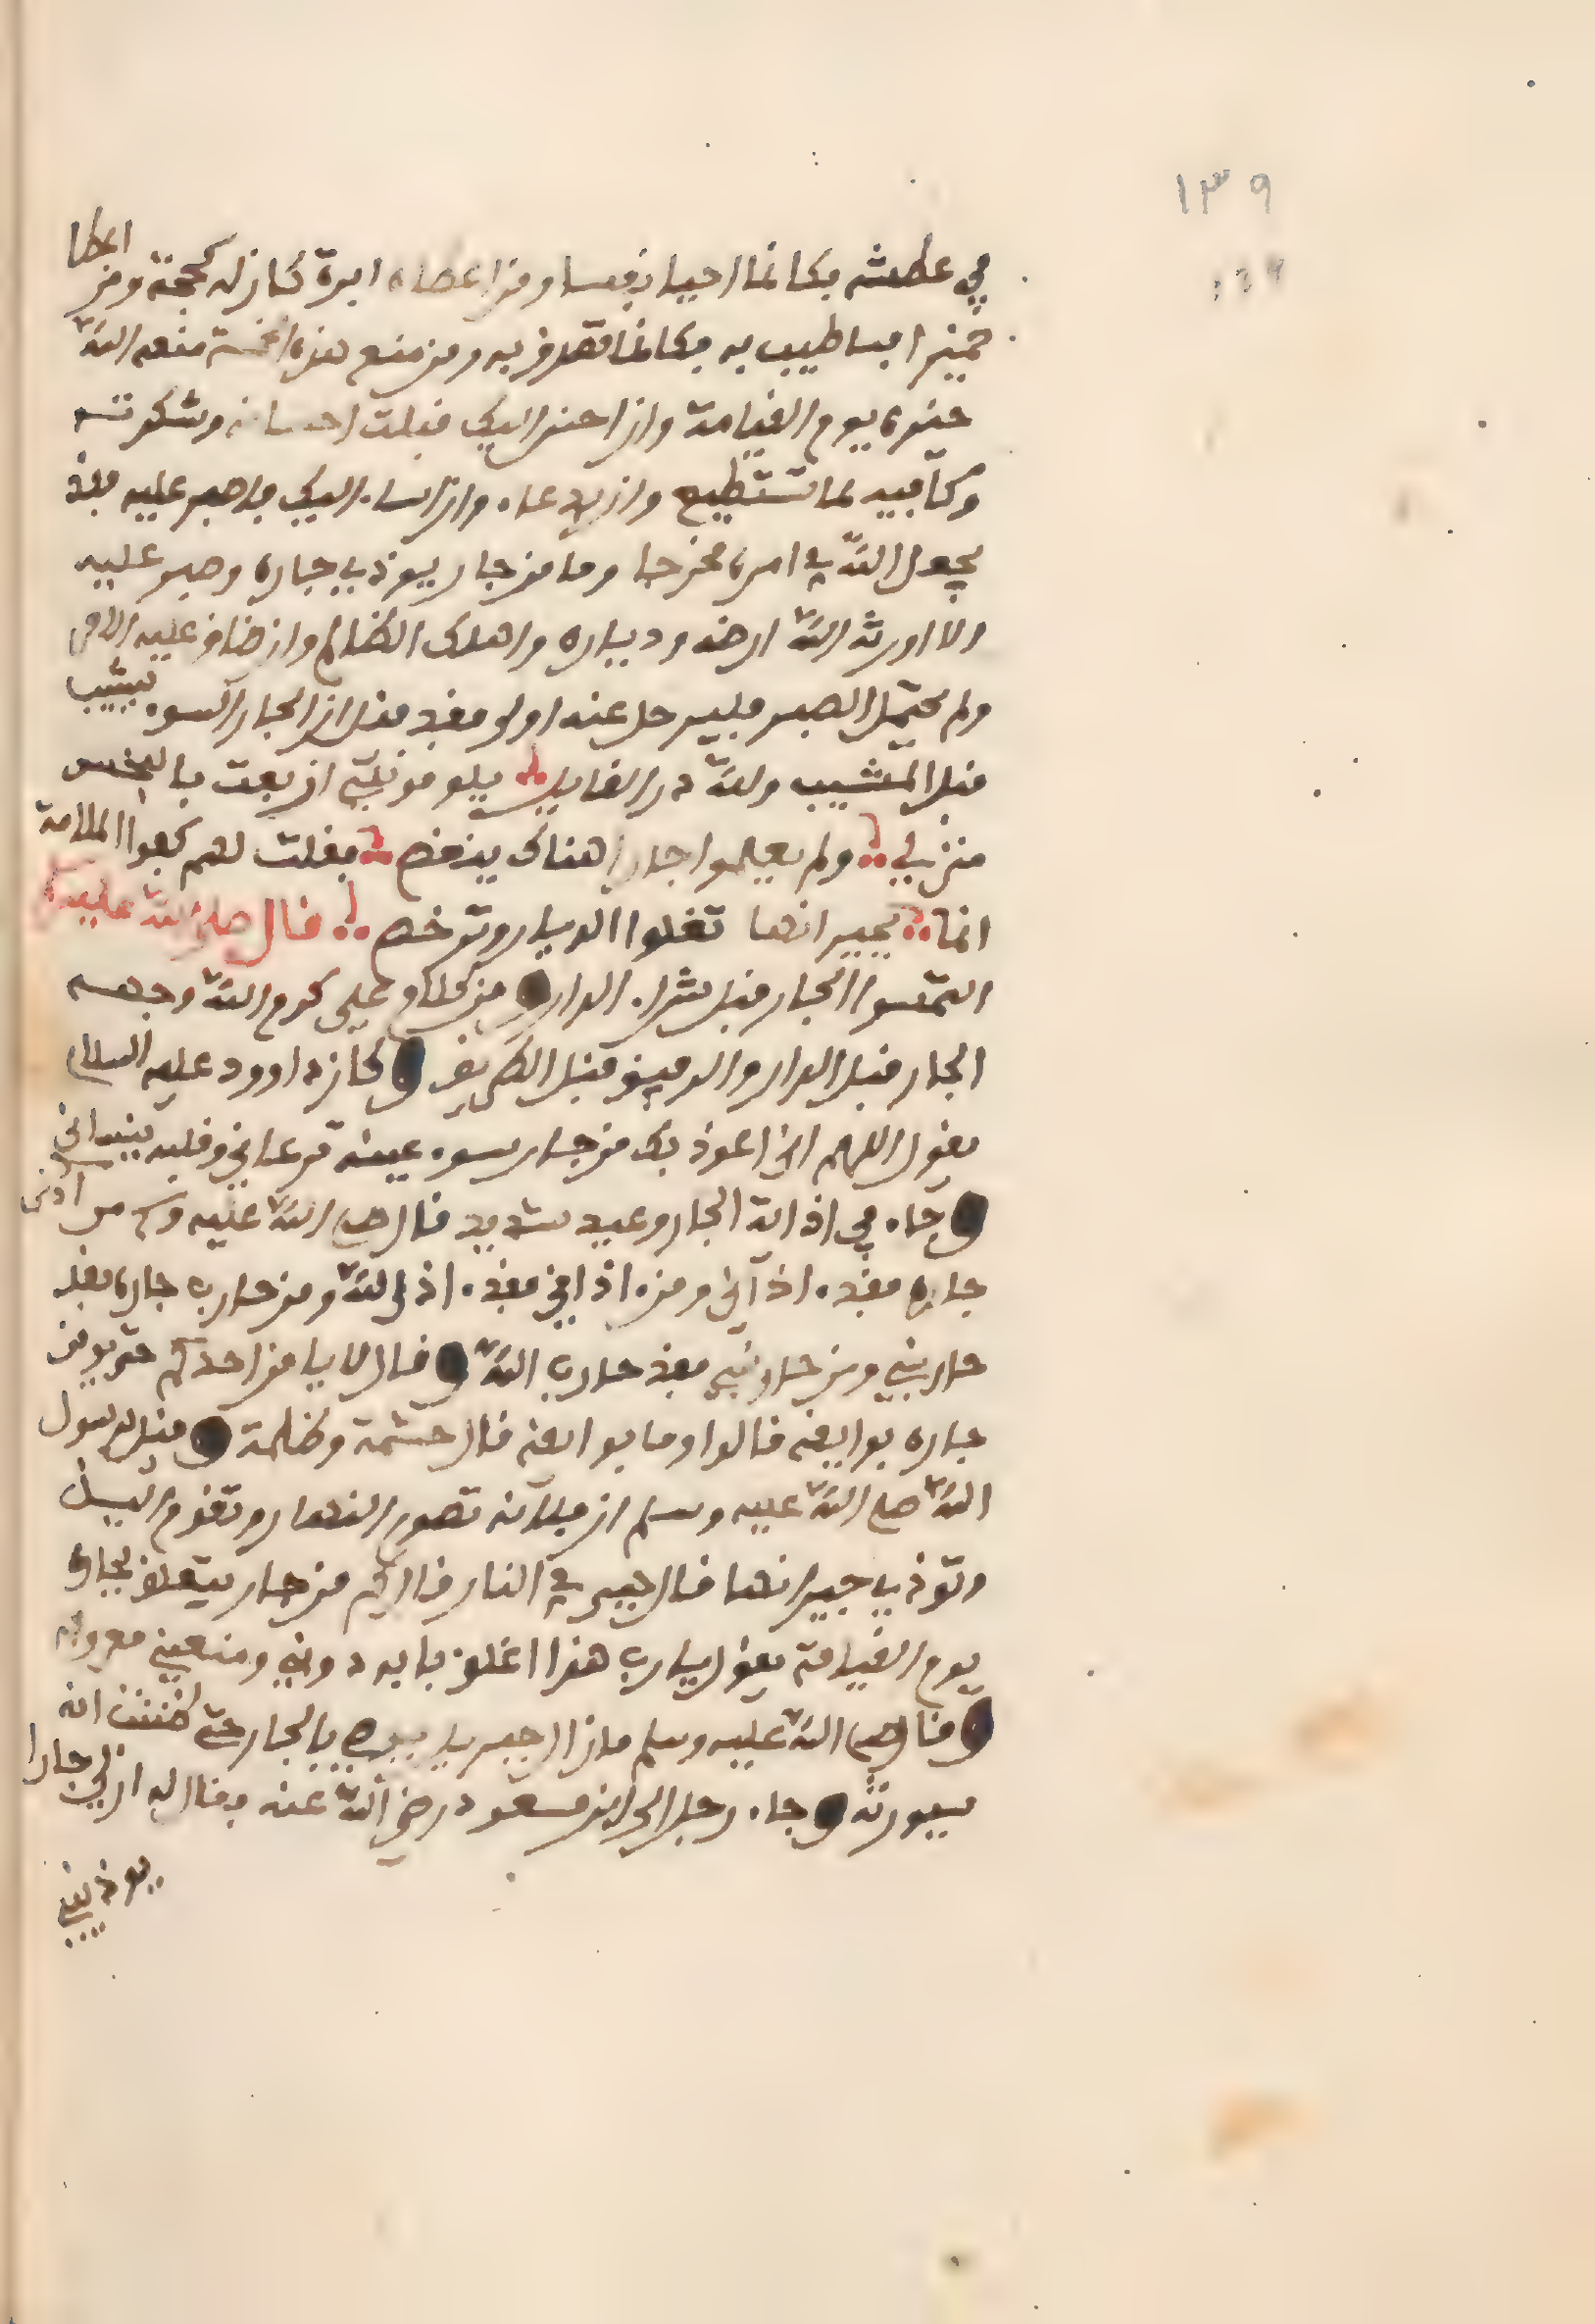 ١٣٩
في عطشه فكانما احيا نفسا ومن اعطاه ابرة كان له كحجة ومن اعطا
خميرا فما طيب به فكانما تصدق به ومن منع هذه الخمسة منعه الله
خيره يوم القيامة وان احسن اليك قبلت احسانه وشكرته
وكافيه بما تستطيع وان بدعاه وان اساء اليك فاصبر عليه فقد
يجعل الله في امره مخرجا وما من جار يوذي جاره وصبر عليه
الا اورثه الله ارضه ودياره واهلك الظالم وان ضاق عليه الامر
ولم يحتمل الصبر فليرحل عنه اولى فقد قيل ان الجار السوء يشيب
قبل المشيب ولله در القايل يلومونني ان بعت بالبخس
منزلي ولم يعلموا جارا هناك ينغص فقلت لهم كفوا الملامة
انما بجيرانها تغلوا الديار وترخص قال صلى الله عليه
التمسوا الجار قبل شراء الدار من كلام علي كرم الله وجهه
الجار قبل الدار والرفيق قبل الطريق وكان داوود عليه السلام
يقول اللهم اني اعوذ بك من جار سوء عينه ترعاني وقلبه ينساني
وجاء في اذاية الجار وعيد شديد قال صلى الله عليه وسلم من آذى
جاره فقد اذآني ومن اذاني فقد اذى الله ومن حارب جاره فقد
حاربني ومن حاربني فقد حارب الله وقال لا يامن احدكم حتى يومن
جاره بوايقه قالوا وما بوايقه قال حشمه وظلمه وقيل لرسول
الله صلى الله عليه وسلم ان فلانة تصوم النهار وتقوم الليل
وتوذي جيرانها قال هي في النار قال كم من جار يتعلق بجاره
يوم القيامة يقول يا رب هذا اغلق بابه دوني ومنعني معروفه
وقال صلى الله عليه وسلم ما زال جبريل يوصي بالجار حتى ظننت انه
سيورثه وجاء رجل الى ابن مسعود رضي الله عنه فقال له ان لي جارا
يوذيني